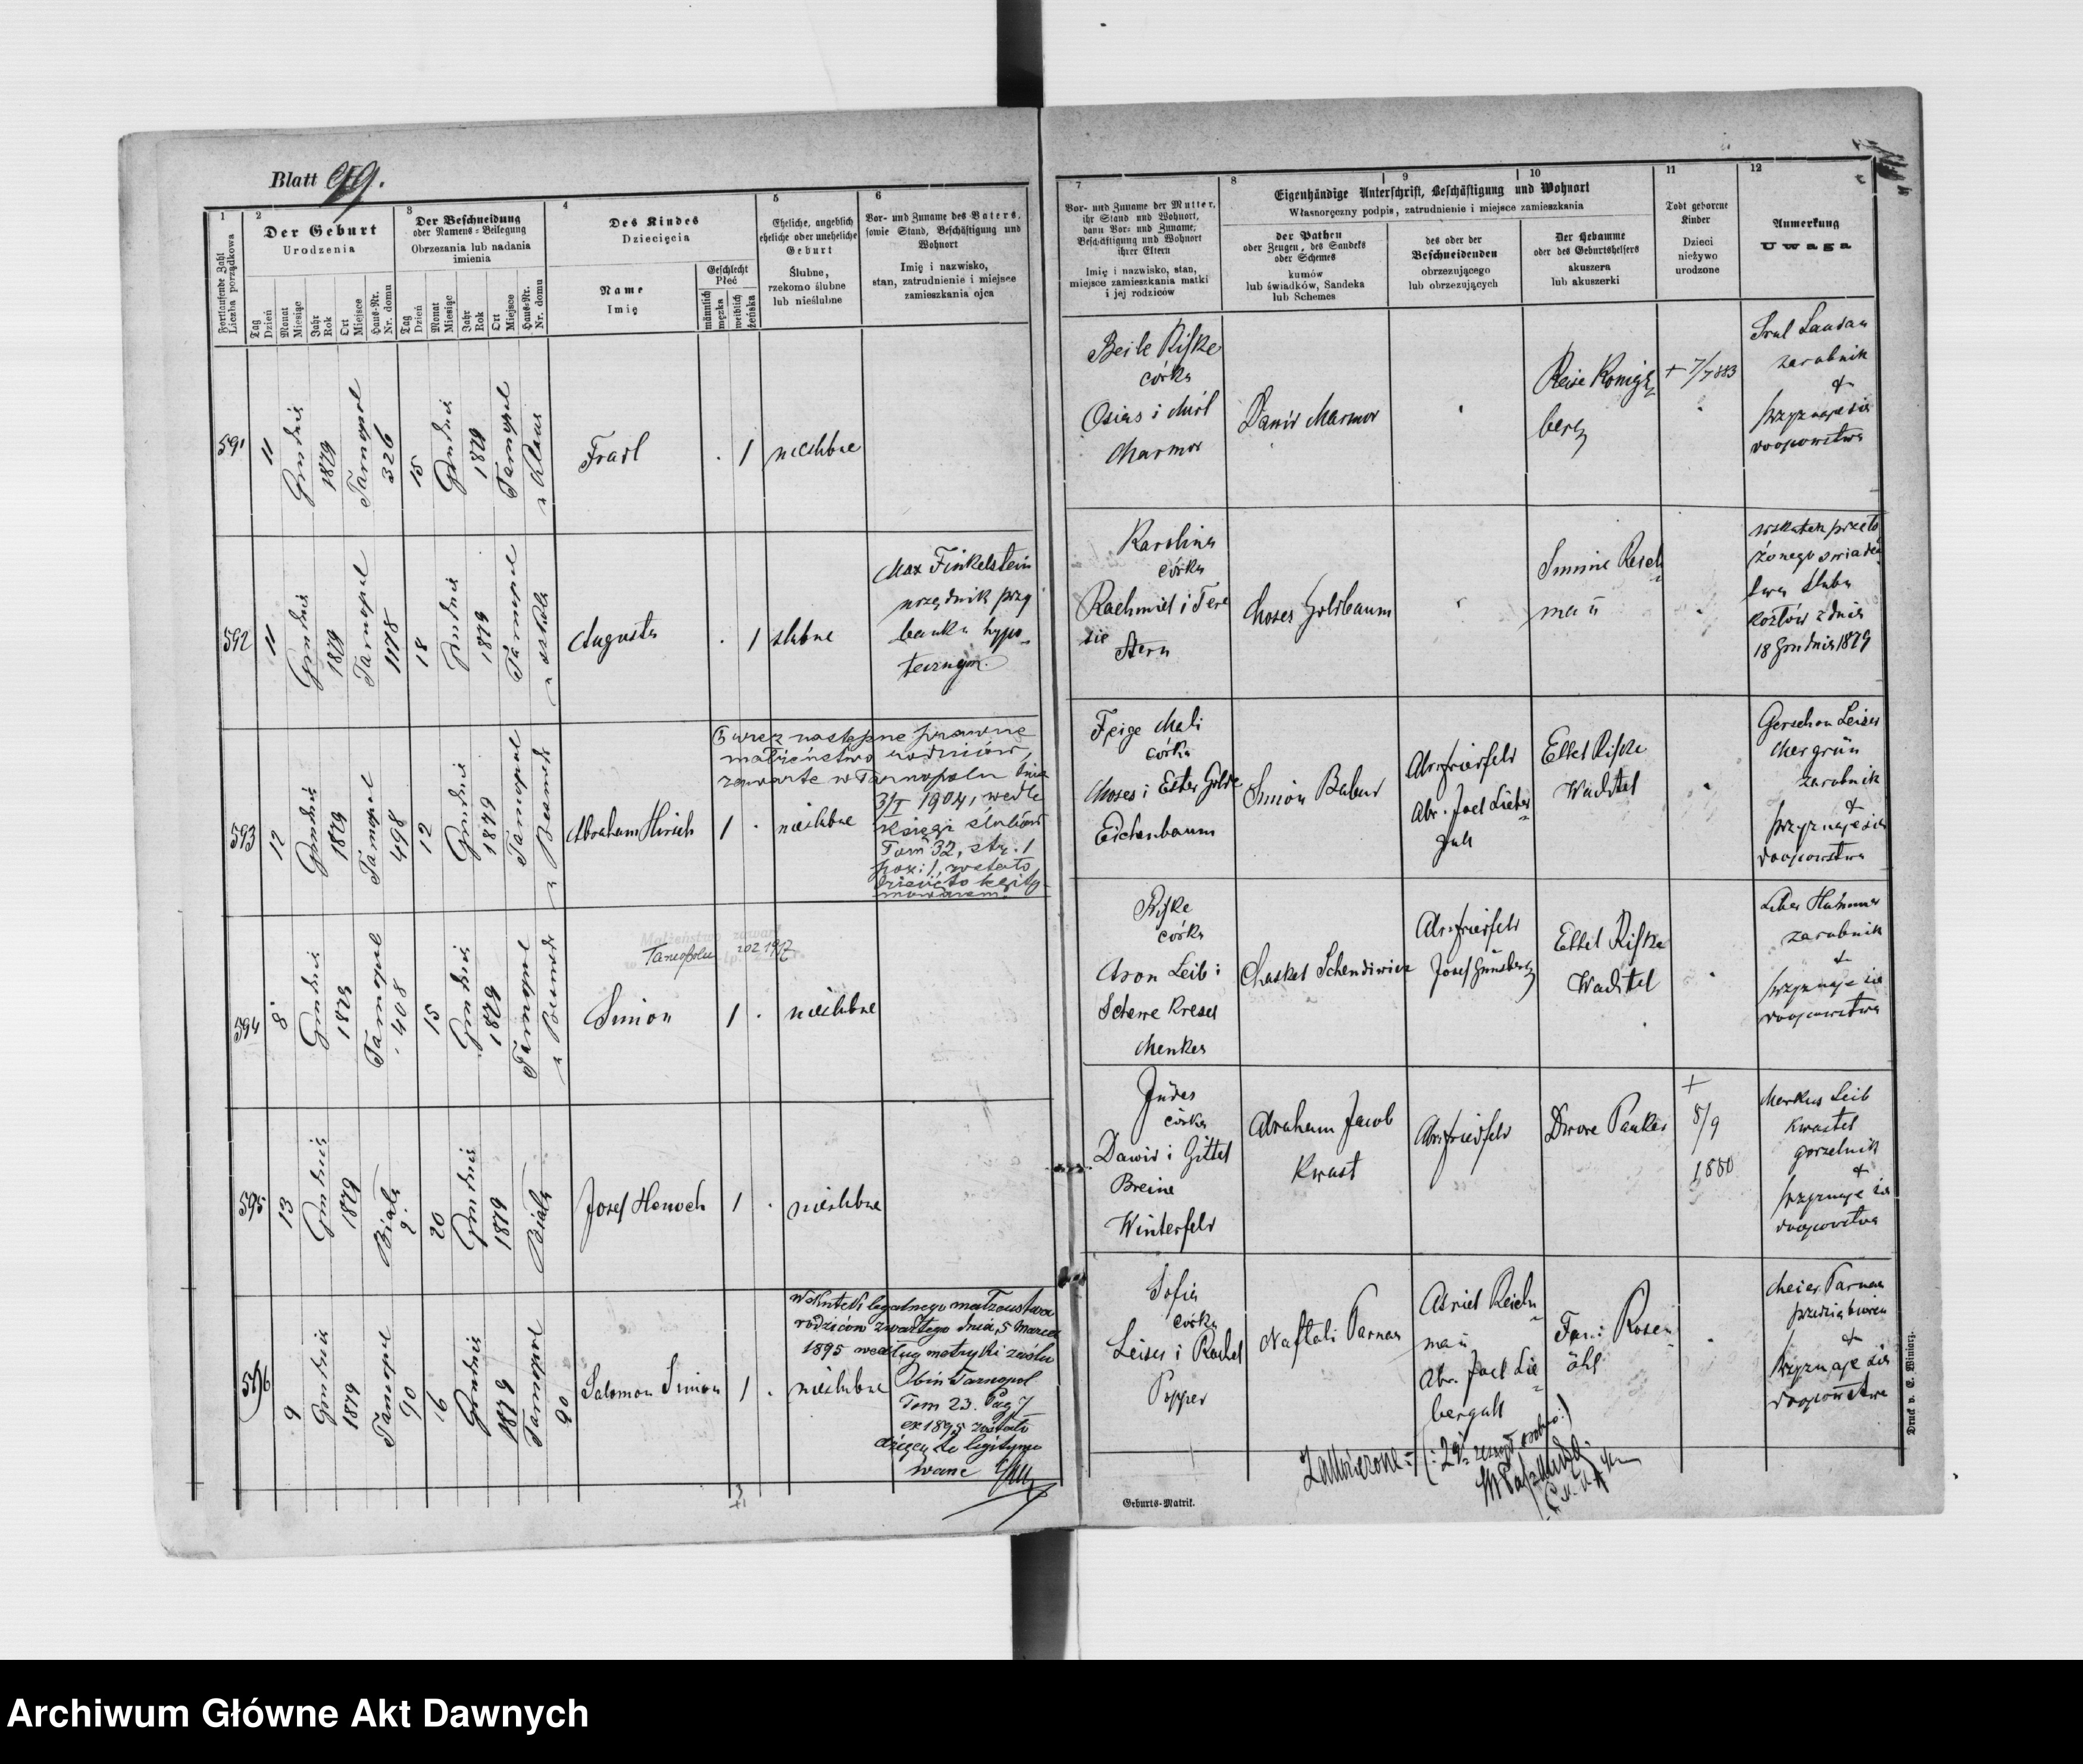 Blatt 99.
1
2
Der Geburt
Urodzenia
3
Der Beschneidung
oder Namens-Beilegung
Obrzezania lub nadania
imienia
4
Des Kindes
Dziecięcia
5
Eheliche, angeblich
eheliche oder uneheliche
Geburt
Ślubne,
rzekomo ślubne
lub nieślubne
6
Vor- und Zuname des Vaters,
sowie Stand, Beschäftigung und
Wohnort
Imię i nazwisko,
stan, zatrudnienie i miejsce
zamieszkania ojca
Fortlaufende Zahl
Liczba porządkowa
Tag
Dzień
Monat
Miesiąc
Jahr
Rok
Ort
Miejsce
Haus-Nr.
Nr. domu
Tag
Dzień
Monat
Miesiąc
Jahr
Rok
Ort
Miejsce
Haus-Nr.
Nr. domu
Name
Imię
Geschlecht
Płeć
männlich
męzka
weiblich
żeńska
7
Vor- und Zuname der Mutter,
ihr Stand und Wohnort,
dann Vor- und Zuname,
Beschäftigung und Wohnort
ihrer Eltern
Imię i nazwisko, stan,
miejsce zamieszkania matki
i jej rodziców
8
9
10
Eigenhändige Unterschrift, Beschäftigung und Wohnort
Własnoręczny podpis, zatrudnienie i miejsce zamieszkania
der Pathen
oder Zeugen, des Sandeks
oder Schemes
kumów
lub świadków, Sandeka
lub Schemes
des oder der
Beschneidenden
obrzezującego
lub obrzezujących
Der Hebamme
oder des Geburtshelfers
akuszera
lub akuszerki
11
Todt geborene
Kinder
Dzieci
nieżywo
urodzone
12
Anmerkung
Uwaga
591
11
Grudnia
1879
Tarnopol
326
15
Grudnia
1879
Tarnopol
w Klaus
Fradl
1
nieślubne
Beile Rifke
córka
Osias i
Marmor
Dawid Marmor
Reise Konigs
berg
+ 7/7 883
Srul Landau
zarobnik
+
przyznaje się
do ojcowstwa
592
11
Grudnia
1879
Tarnopol
1178
18
Grudnia
1879
Tarnopol
w
Augusta
1
ślubne
Max Finkelstein
urzędnik przy
banku hypo-
tecznym.
Karolina
córka
Rachmiel i Tere
sie
Stern
Moses Goldbaum
Simme Reich
man
wskutek przeło
żonego świadec
twa ślubu
Kozłów z dnia
18 Grudnia 1879
593
12
Grudnia
1879
Tarnopol
498
12
Grudnia
1879
Tarnopol
w
Abraham Hirsch
1
nieślubne
Przez następne prawne
małżeństwo rodziców,
zawarte w Tarnopolu dnia
3/I 1904, wedle
Księgi ślubów
Tom 32, str. 1
poz: 1, zostało
dziecię to legity-
mowanem.
Feige Mali
córka
Moses i Ester Golde
Eichenbaum
Simon Babad
Abr. Friedfeld
Abr. Joel Lieber
gall
Ettel Rifke
Wachtel
Gerschon Leiser
Mergrün
zarobnik
+
przyznaje się
do ojcowstwa
594
8
Grudnia
1879
Tarnopol
408
15
Grudnia
1879
Tarnopol
w
Małżeństwo zawarł
Tarnopolu
Simon
1
nieślubne
Rifke
córka
Aron Leib i
Scheve Kresel
Menkes
Chaskel
Abr. Friedfeld
Josef Günsberg
Ettel Rifke
Wachtel
zarobnik
+
przyznaje się
do ojcowstwa
595
13
Grudnia
1879
Biała
9
20
Grudnia
1879
Biała
Josef Henoch
1
nieślubne
Judes
córka
Dawid i Gittel
Breine
Winterfeld
Abraham Jacob
Kwast
Abr. Friedfeld
Dwore Pauker
+
8/9
1880
Markus Leib
Kwastel
gorzelnik
+
przyznaje się
do ojcowstwa
596
9
Grudnia
1879
Tarnopol
90
16
Grudnia
1879
Tarnopol
90
Salomon Simon
1
nieślubne
Wskutek legalnego małżeństwa
rodziców zwartego dnia 5 Marca
1895 według metryki zaślu
bin Tarnopol
Tom 23. Pag 7
ex 1895 zostało
dziecię to legitymo
wane
Sofia
córka
Leiser i Rachel
Popper
Naftali Parnas
Asriel Reich
man
Abr. Joel Lie
bergall
Fani Rosen
öhl
Meier Parnas
przedsiębiorca
+
przyznaje się
do ojcowstwa
Geburts-Matrik.
Druck v. E. Winiarz.
Archiwum Główne Akt Dawnych